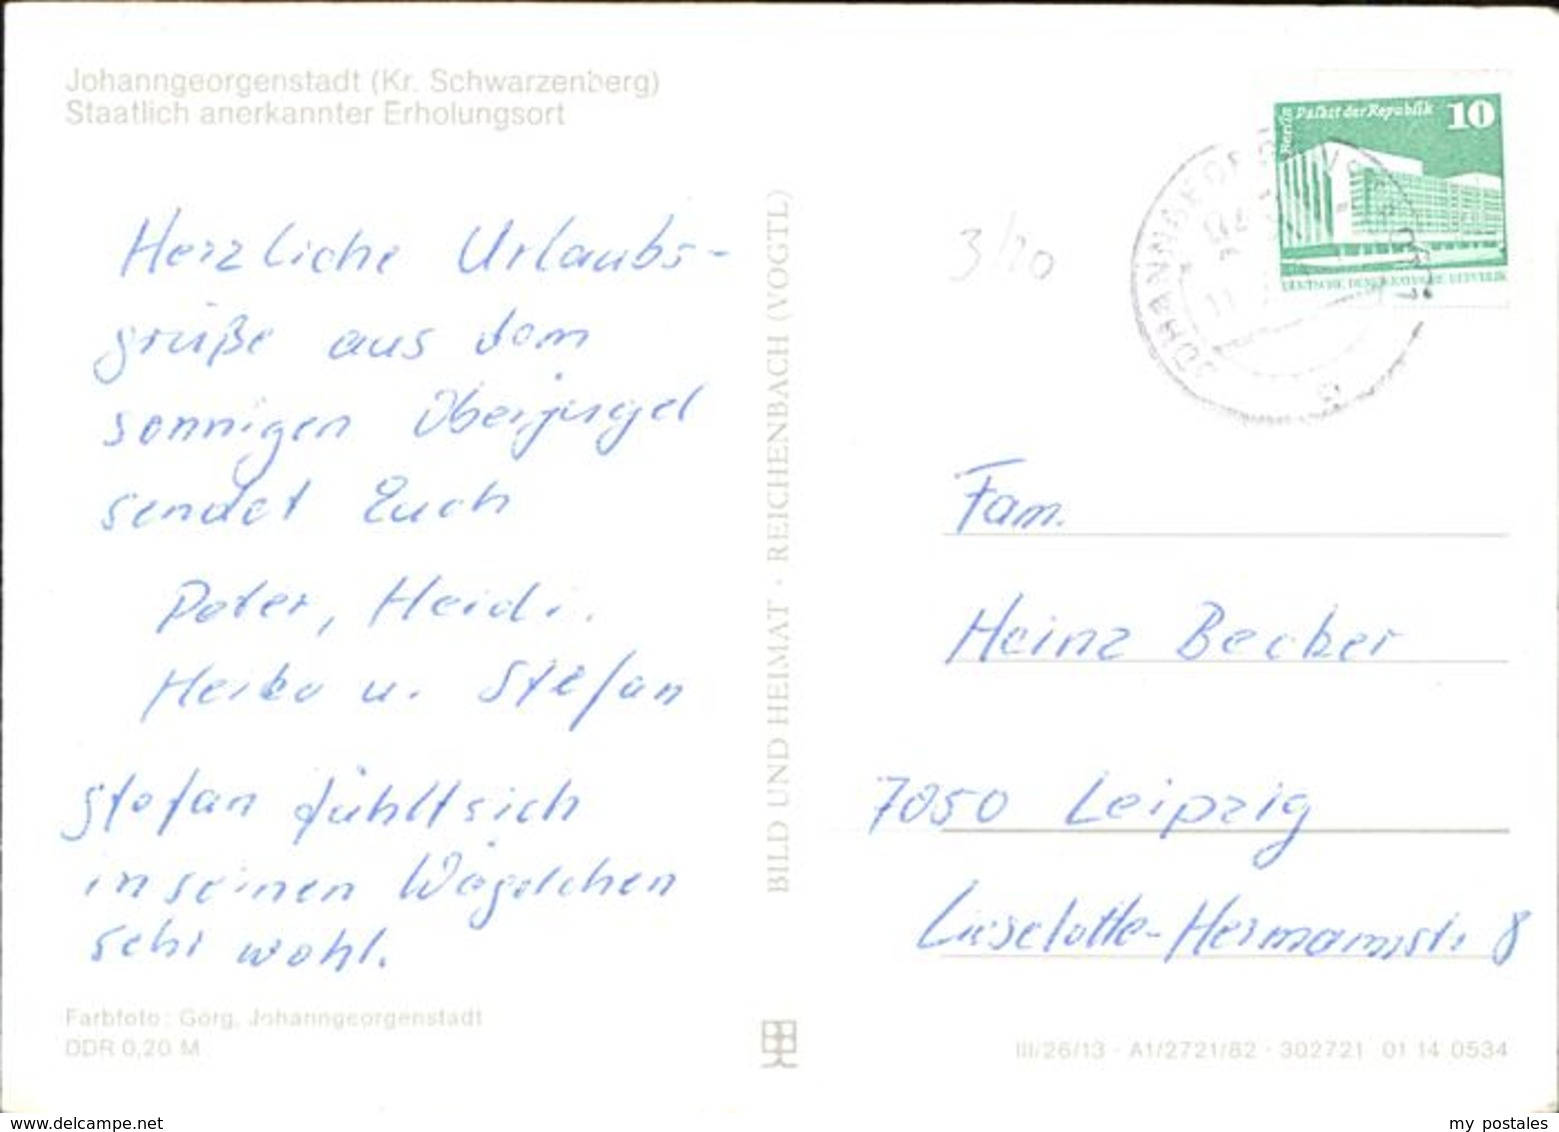 Johanngeorgenstadt (Kr. Schwarzenberg)
Staatlich anerkannter Erholungsort
Herzliche Urlaubs-
grüße aus dem
sonnigen Oberjugel
sendet Euch
Peter, Heidi,
Heiko u. Stefan
Stefan fühlt sich
in seinen Wägelchen
sehr wohl.
Farbfoto: Görg, Johanngeorgenstadt
DDR 0,20 M
BILD UND HEIMAT · REICHENBACH (VOGTL)
3/20
Berlin Palast der Republik 10
DEUTSCHE DEMOKRATISCHE REPUBLIK
Fam.
Heinz Becker
7050 Leipzig
Lieselotte-Hermannstr 8
III/26/13 · A1/2721/82 · 302721 01 14 0534
www.delcampe.net
my postales